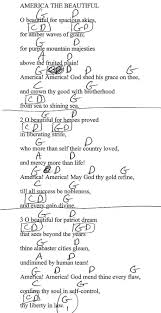 AMERICA THE BEAUTIFUL
G D
O beautiful for spacious skies,
C D G D
for amber waves of grain;
G D
for purple mountain majesties
A D
above the fruited plain!
G D G D
America! America! God shed his grace on thee,
C G
and crown thy good with brotherhood
C D G
from sea to shining sea.
G D
2 O beautiful for heroes proved
C D G D
in liberating strife,
G D
who more than self their country loved,
A D
and mercy more than life!
G D G D
America! America! May God thy gold refine,
C G
till all success be nobleness,
C D G D
and every gain divine.
G D
3 O beautiful for patriot dream
C D G D
that sees beyond the years
G D
thine alabaster cities gleam,
A D
undimmed by human tears!
G D G D
America! America! God mend thine every flaw,
C G
confirm thy soul in self-control,
C D G
thy liberty in law.